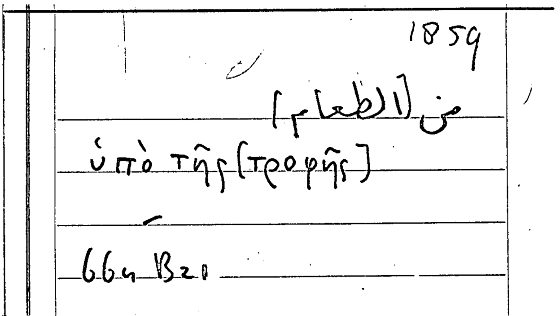 1859
من [الطعام]
ὑπὸ τῆς [τροφῆς]
66a B21